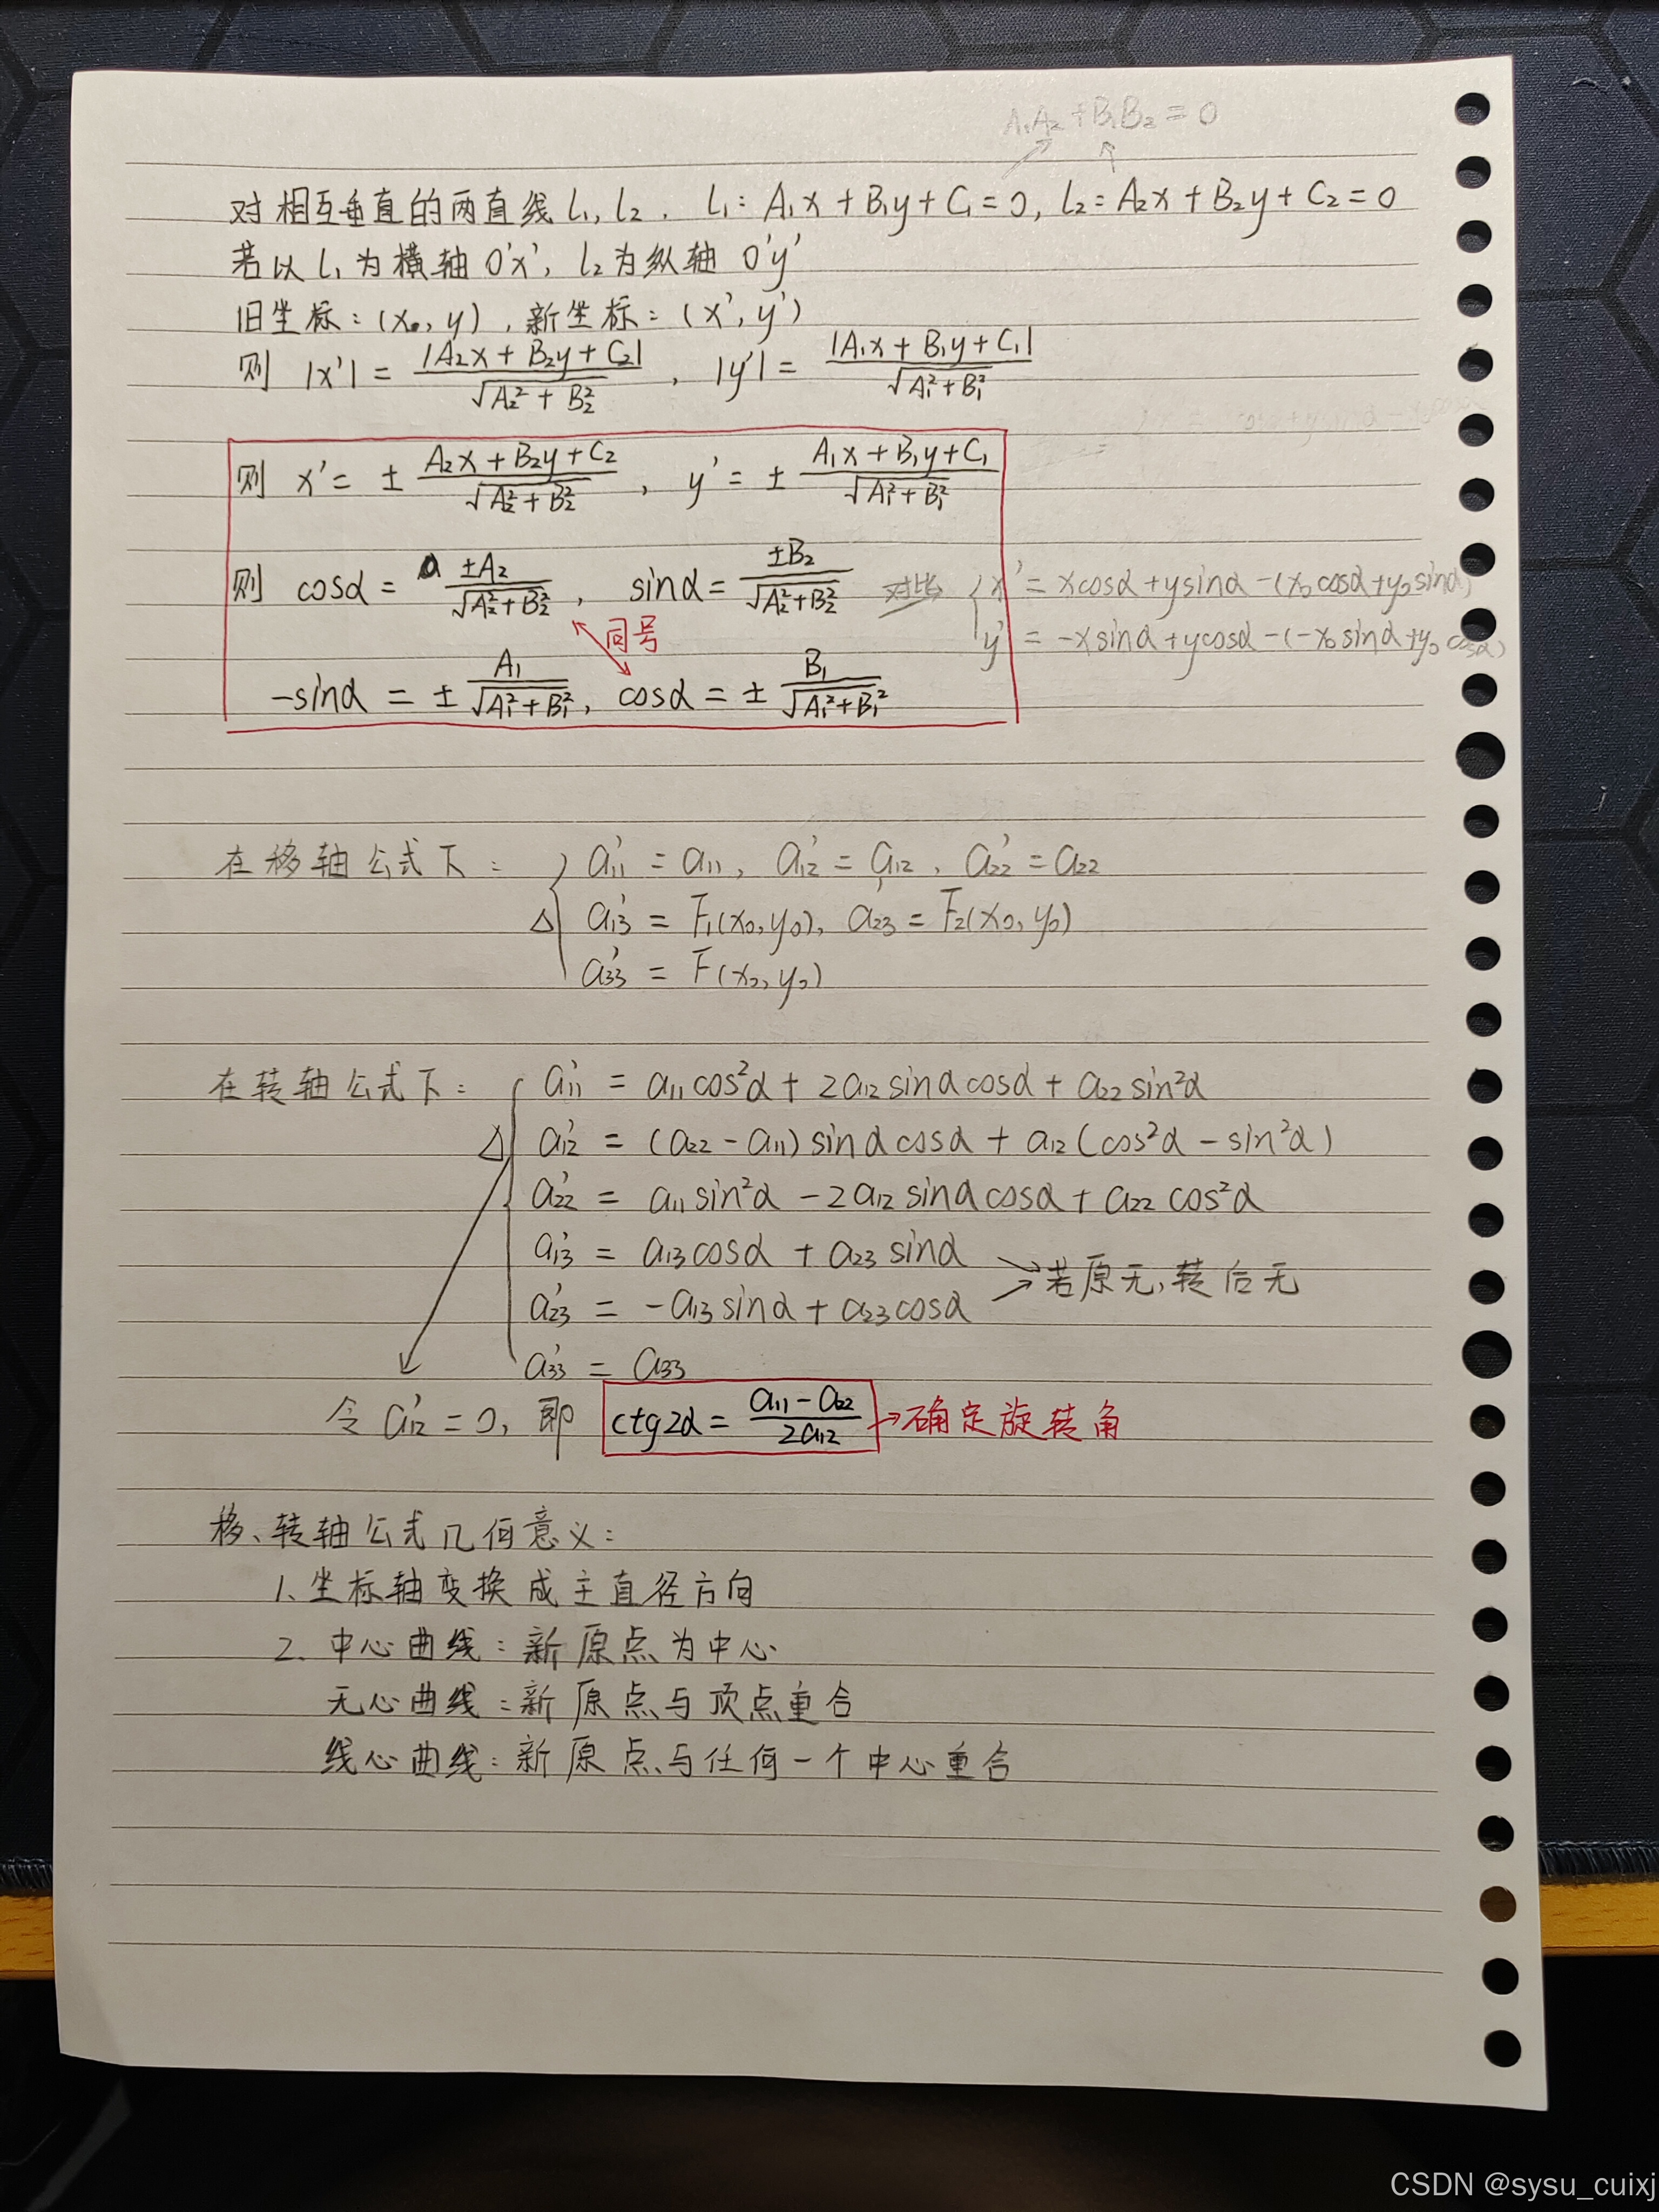 A₁A₂+B₁B₂=0
对相互垂直的两直线 l₁, l₂. l₁: A₁x+B₁y+C₁=0, l₂: A₂x+B₂y+C₂=0
若以 l₁ 为横轴 O'x', l₂ 为纵轴 O'y'
旧坐标: (x, y), 新坐标: (x', y')
则 |x'| = |A₂x+B₂y+C₂| / √(A₂²+B₂²), |y'| = |A₁x+B₁y+C₁| / √(A₁²+B₁²)
则 x' = ± (A₂x+B₂y+C₂) / √(A₂²+B₂²), y' = ± (A₁x+B₁y+C₁) / √(A₁²+B₁²)
则 cosα = ±A₂ / √(A₂²+B₂²), sinα = ±B₂ / √(A₂²+B₂²) 对比 { x' = xcosα+ysinα-(x₀cosα+y₀sinα)
同号 y' = -xsinα+ycosα-(-x₀sinα+y₀cosα)
-sinα = ± A₁ / √(A₁²+B₁²), cosα = ± B₁ / √(A₁²+B₁²)
在移轴公式下: a₁₁' = a₁₁, a₁₂' = a₁₂, a₂₂' = a₂₂
△ { a₁₃' = F₁(x₀,y₀), a₂₃' = F₂(x₀,y₀)
a₃₃' = F(x₀,y₀)
在转轴公式下: a₁₁' = a₁₁cos²α + 2a₁₂sinαcosα + a₂₂sin²α
△ { a₁₂' = (a₂₂-a₁₁)sinαcosα + a₁₂(cos²α-sin²α)
a₂₂' = a₁₁sin²α - 2a₁₂sinαcosα + a₂₂cos²α
a₁₃' = a₁₃cosα + a₂₃sinα
→ 若原无,转后无
a₂₃' = -a₁₃sinα + a₂₃cosα
a₃₃' = a₃₃
令 a₁₂' = 0, 即 ctg2α = (a₁₁-a₂₂) / 2a₁₂ → 确定旋转角
移、转轴公式几何意义:
1. 坐标轴变换成主直径方向
2. 中心曲线: 新原点为中心
无心曲线: 新原点与顶点重合
线心曲线: 新原点与任何一个中心重合
CSDN @sysu_cuixj